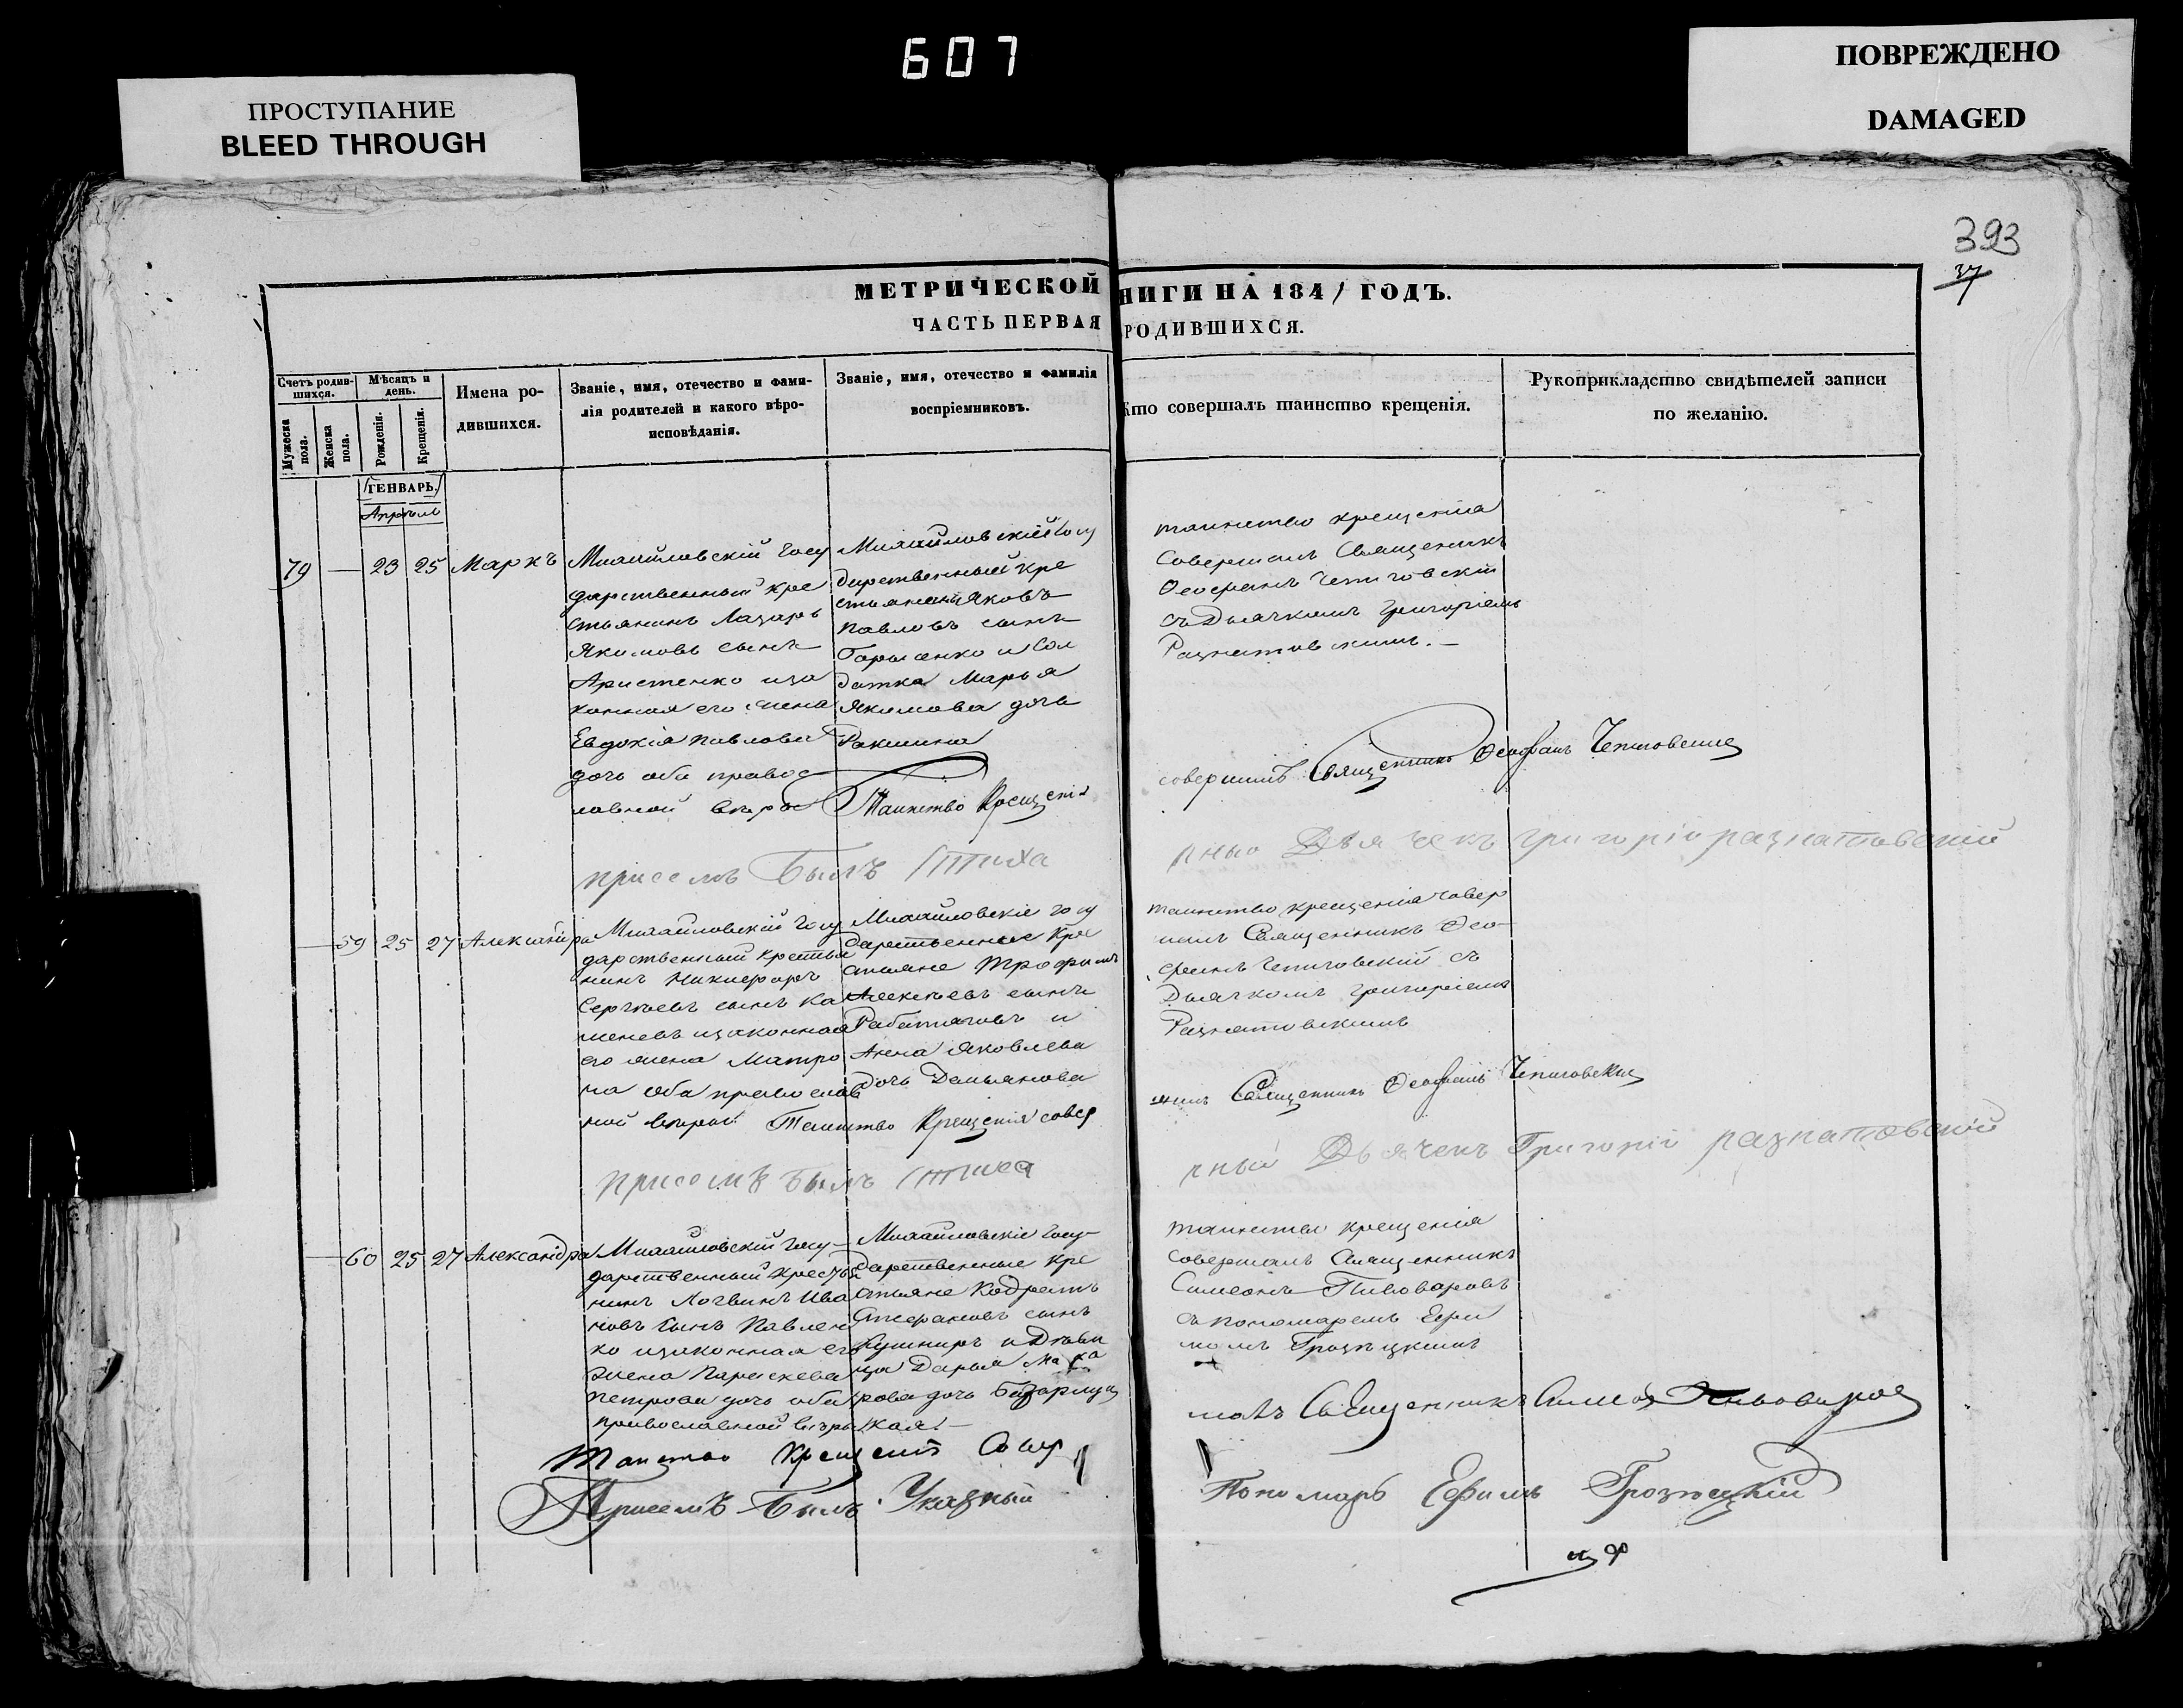 607
ПРОСТУПАНИЕ
BLEED THROUGH
ПОВРЕЖДЕНО
DAMAGED
393
37
МЕТРИЧЕСКОЙ НИГИ НА 1841 ГОДЪ.
ЧАСТЬ ПЕРВАЯ РОДИВШИХСЯ.
Счетъ родив-
шихся.
Мужеска
пола.
Женска
пола.
Мѣсяцъ и
день.
Рожденія.
Крещенія.
Имена ро-
дившихся.
Званіе, имя, отечество и фами-
лія родителей и какого вѣро-
исповѣданія.
Званіе, имя, отечество и фамилія
воспріемниковъ.
Кто совершалъ таинство крещенія.
Рукоприкладство свидѣтелей записи
по желанію.
ГЕНВАРЬ.
Апрѣль
79 — 23 25 Маркъ
Михайловскій госу
дарственный кре
стьянинъ Лазарь
Якимовъ сынъ
Аристенко иза
конная его жена
Евдокія Павлова
дочь оба правос
лавной вѣры
Михайловскій госу
дарственный кре
стьянинъ Яковъ
Павловъ сынъ
Борисенко и Сол
датка Марья
Якимова дочь
таинство крещенія
Совершалъ Священникъ
Ѳеофанъ
съ Дьячкомъ Григоріемъ
Разнатовскимъ. —
Таинство Крещенія
совершилъ Священникъ Ѳеофанъ
присемъ былъ Стиха
рный Дьячекъ Григорій разнатовскій
— 59 25 27 Александра
Михайловскій госу
дарственный крестья
нинъ Никифоръ
Сергѣевъ сынъ Ка
меневъ изаконная
его жена Матро
на оба православ
ной вѣры
Михайловскіе госу
дарственные кре
стьяне Трофимъ
Алексѣевъ сынъ
Работяговъ и
Анна Яковлева
дочь Демьянова
таинство крещенія совер
шалъ Священникъ Ѳео
фанъ съ
Дьячкомъ Григоріемъ
Разнатовскимъ
Таинство Крещенія совер
шилъ Священникъ Ѳеофанъ
присемъ былъ Стиха
рный Дьячекъ Григорій разнатовскій
— 60 25 27 Александра
Михайловскій госу
дарственный крестья
нинъ Логвинъ Ива
новъ сынъ Павлен
ко изаконная его
жена Параскева
Петрова дочь оба
православной вѣры
Михайловскіе госу-
дарственные кре
стьяне Кодратъ
Стефановъ сынъ
Кушниръ и Дѣви
ца Дарья Мака
рова дочь
таинство крещенія
совершалъ Священникъ
Симеонъ Пивоваровъ
съ пономаремъ Ефи
момъ Грозицкимъ
Таинство Крещенія Совер
шалъ Священникъ Симеонъ Пивоваровъ
Присемъ былъ Указный
Пономарь Ефимъ Грозицкій